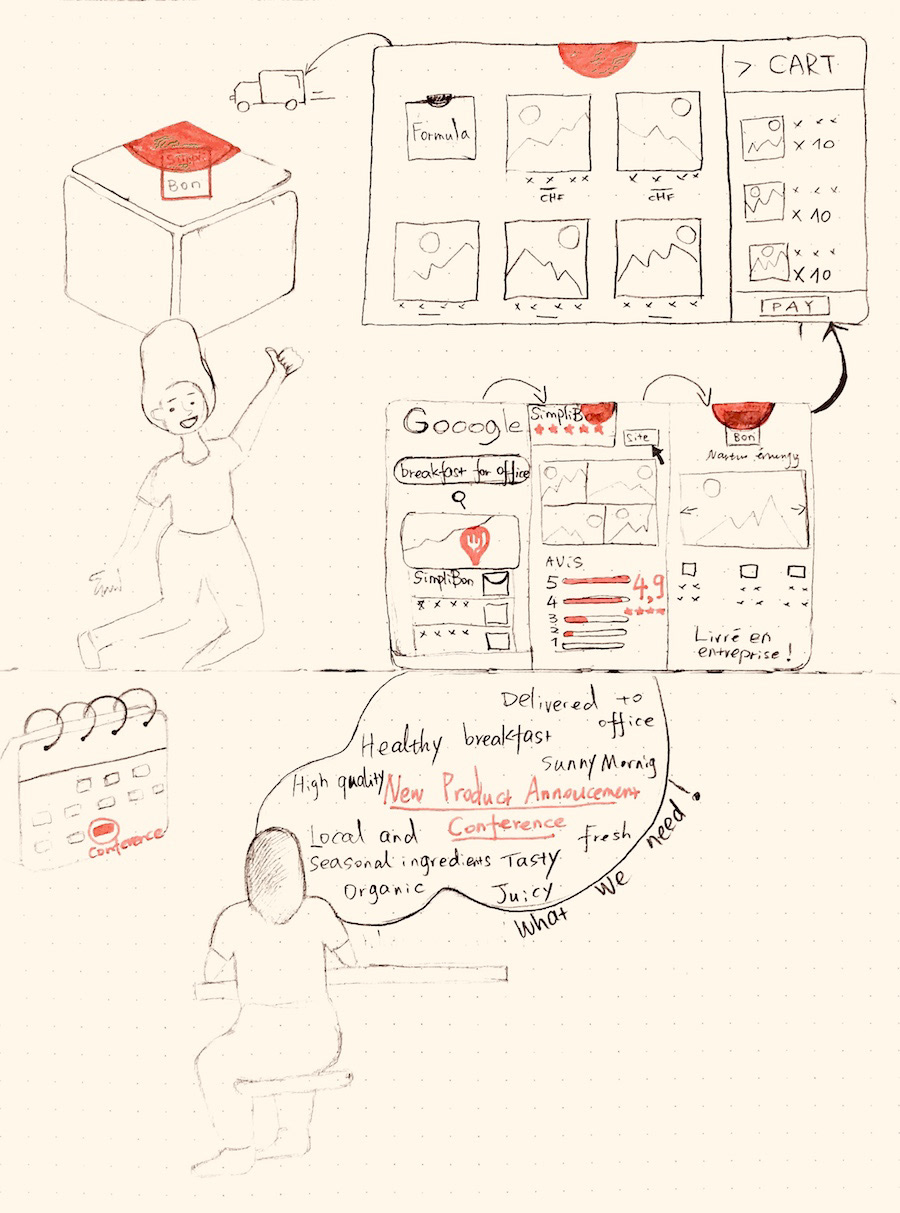 > CART
Formula
x x x x
CHF
x x x x
CHF
x x x
x 10
x x x
x 10
x x x
x 10
x x x x
x x x x
x x x x
PAY
Simpli
Bon
Gooogle
breakfast for office
SimpliBon
x x x x
x x x x
SimpliBon
Site
AVIS
5
4
3
2
1
4,9
Bon
Livré en
entreprise !
Delivered to
office
Healthy breakfast
Sunny Mornig
High quality
New Product Annoucement
Conference
Local and
Seasonal ingredients
Fresh
Tasty
Organic
Juicy
What we need!
Conference